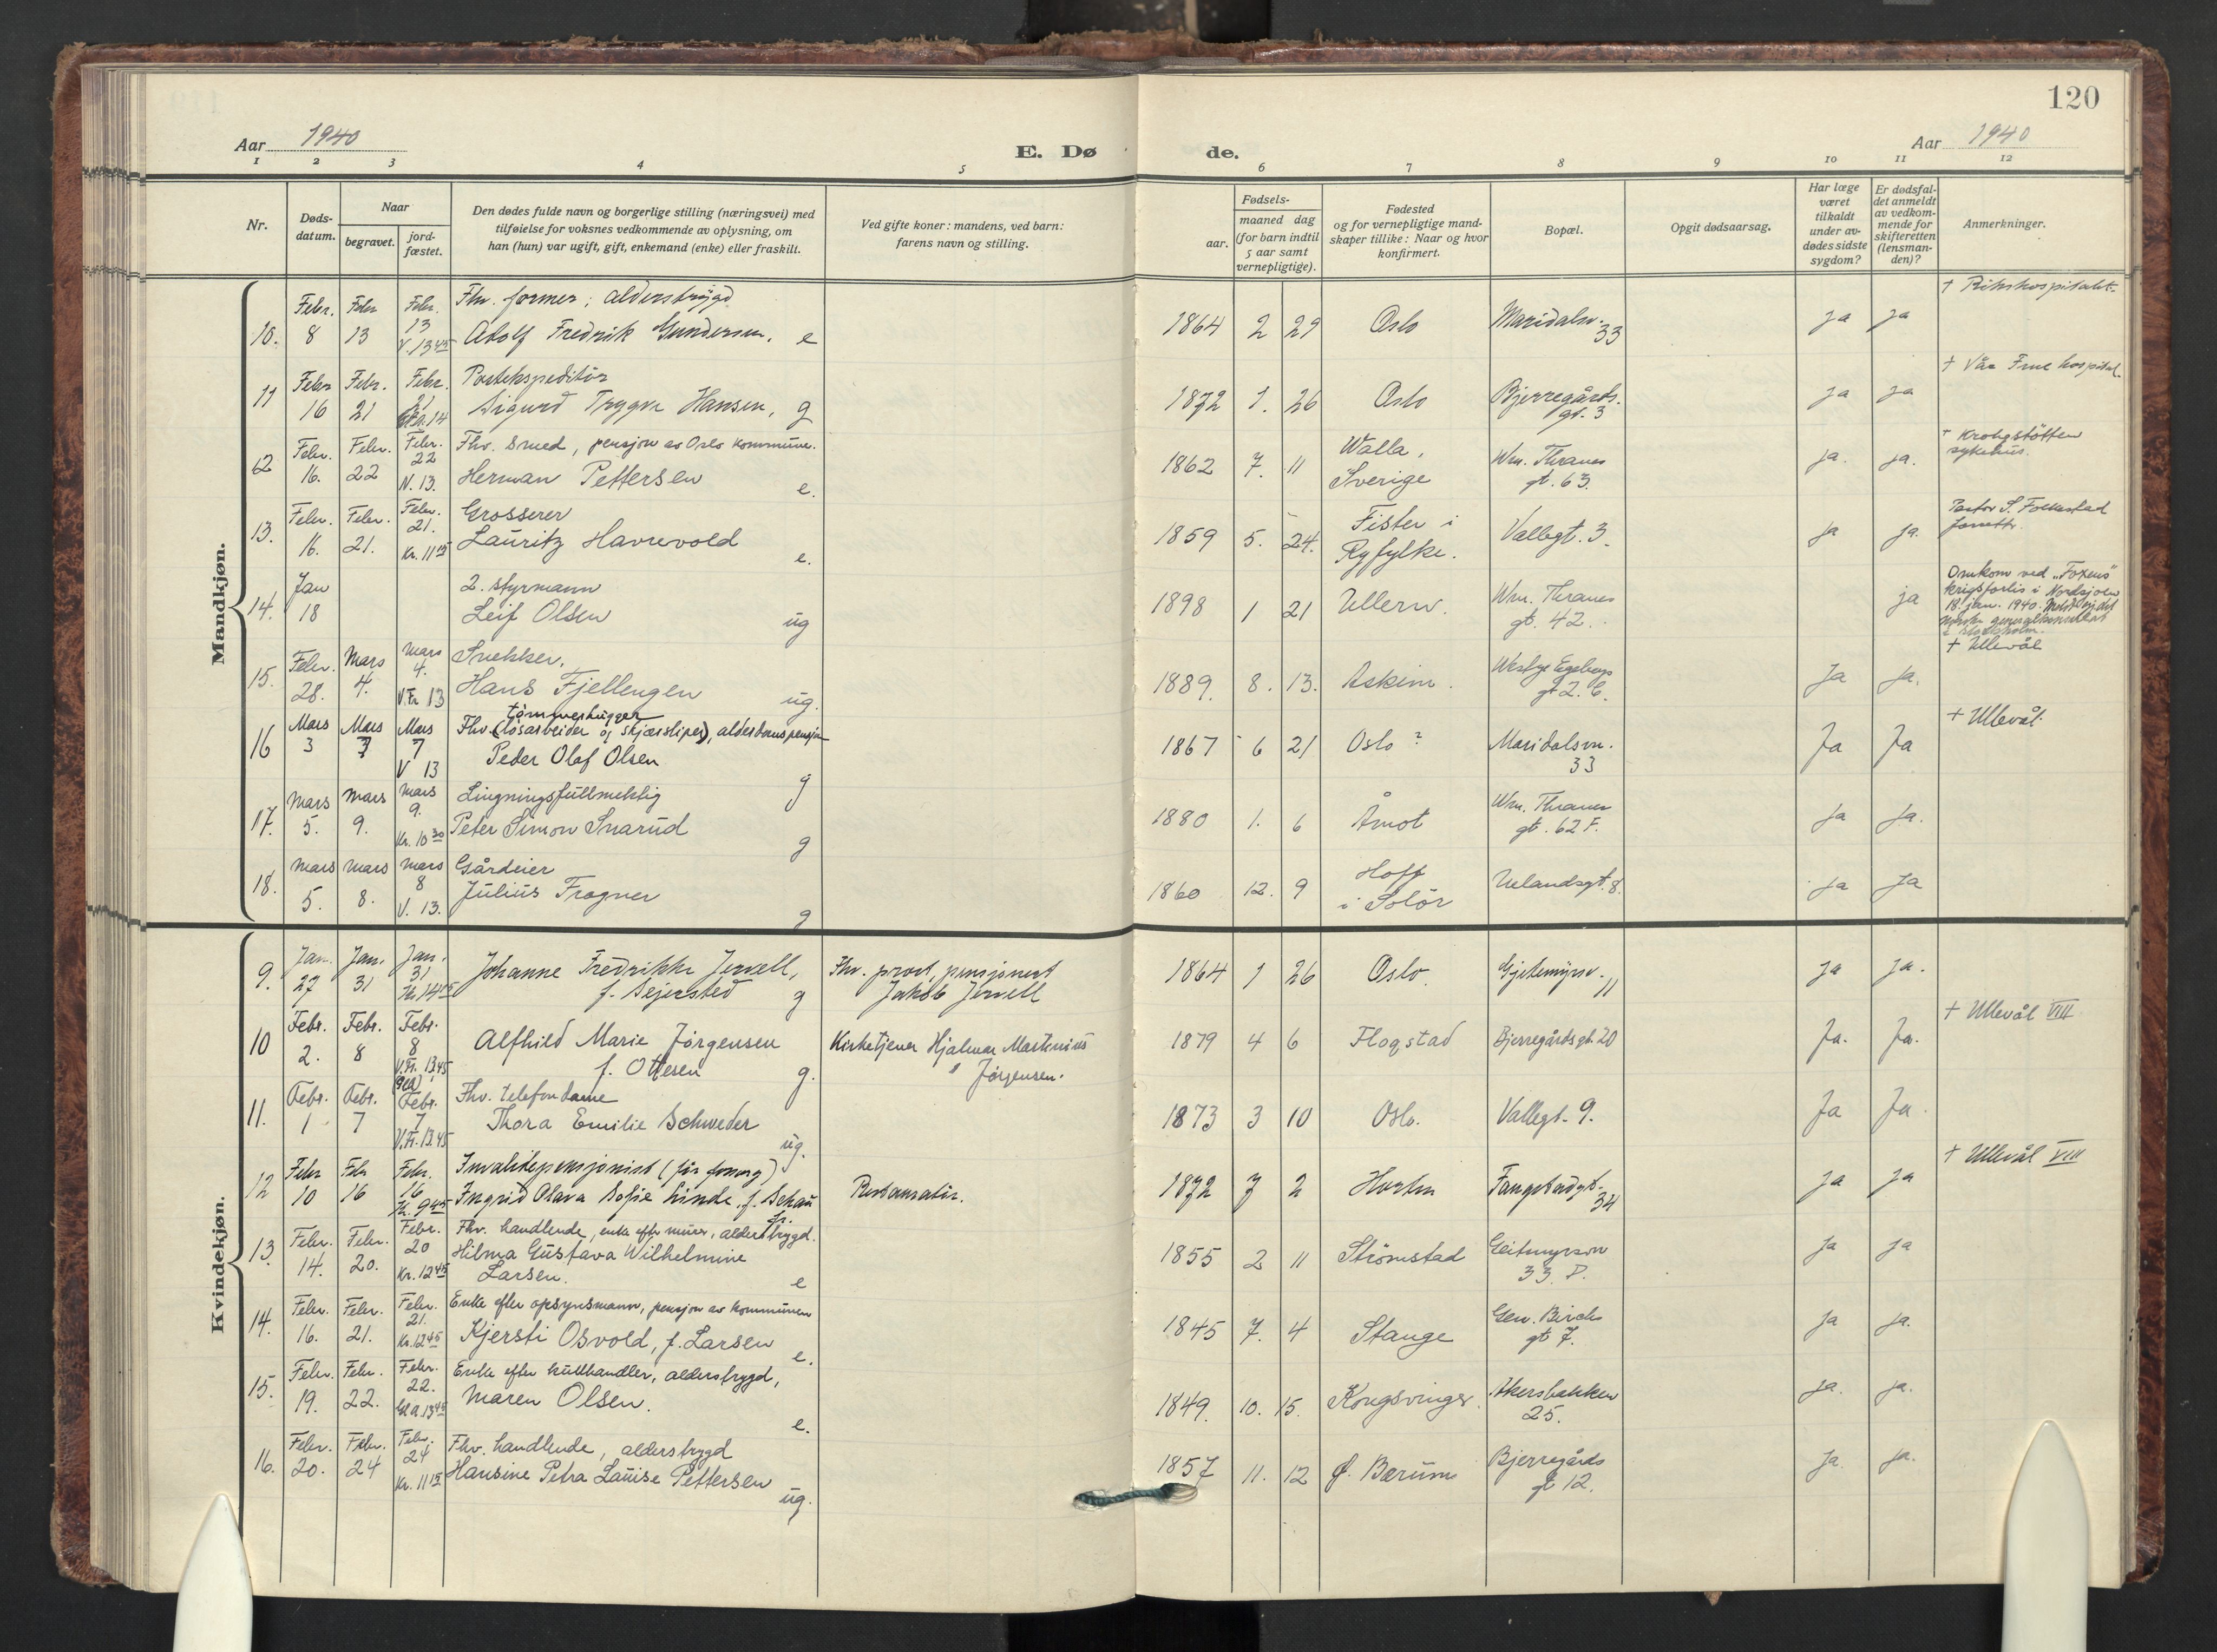 120
Aar 1940
E. Dø de.
Aar 1940
1 2 3 4 5 6 7 8 9 10 11 12
Nr.
Døds-
datum.
Naar
begravet.
jord-
fæstet.
Den dødes fulde navn og borgerlige stilling (næringsvei) med
tilføielse for voksnes vedkommende av oplysning, om
han (hun) var ugift, gift, enkemand (enke) eller fraskilt.
Ved gifte koner: mandens, ved barn:
farens navn og stilling.
Fødsels-
aar.
maaned dag
(for barn indtil
5 aar samt
vernepligtige).
Fødested
og for vernepligtige mand-
skaper tillike: Naar og hvor
konfirmert.
Bopæl.
Opgit dødsaarsag.
Har læge
været
tilkaldt
under av-
dødes sidste
sygdom?
Er dødsfal-
det anmeldt
av vedkom-
mende for
skifteretten
(lensman-
den)?
Anmerkninger.
Mandkjøn.
Febr. Febr Febr. Fhv. former, alderstrygd † Rikshospitalet.
10. 8 13 13 V. 13 45 Adolf Fredrik Gundersen. e 1864 2 29 Oslo Maridalsv. 33 ja ja
Febr Febr. Febr. Postekspeditør † Vår Frue hospital.
11 16 21 21 14 Sigurd Trygve Hansen, g 1872 1. 26 Oslo Bjerregårds. gt. 3 ja ja
Febr. Febr. Febr. Fhv. smed, pensjon av Oslo kommune. † Krohgstøtten sykehus.
12 16. 22 22 N. 13. Herman Pettersen e. 1862 7. 11 Walla, Sverige Wm. Thranes gt. 63. ja. ja.
Febr. Febr. Febr. Grosserer Pastor S. Folkestad forrettr.
13. 16. 21. 21. Kr. 11 15 Lauritz Havrevold e. 1859 5. 24. Fister i Ryfylke. Vallegt. 3. ja ja.
Jan 2. styrmann
14. 18 Leif Olsen ug 1898 1 21 Ullern. Wm. Thranes gt. 42. ja
Omkom ved "Foxens"
krigsforlis i Nordsjøen
18. jan. 1940. Meldt til det
norske generalkonsulat
i Stockholm.
Febr. Mars Mars Snekker, † Ullevål
15. 28. 4. 4. V.Fr 13 Hans Fjellengen ug. 1889. 8. 13. Askim. Westye Egebergs gt 2. C. Ja ja.
tømmerhugger
Mars Mars Mars Fhv. (løsarbeider og skjærsliper), alderdomspensjon + Ullevål.
16 3 7 7 V 13 Peder Olaf Olsen g 1867 6 21 Oslo ? Maridalsvn. 33 Ja Ja
Mars Mars Mars Ligningsfullmektig
17. 5. 9. 9. Kr. 10 30 Peter Simon Snarud g 1880 1. 6 Åmot Wm. Thranes gt. 62 F. ja ja.
Mars Mars Mars Gårdeier
18. 5. 8. 8 V. 13. Julius Frogner g 1860 12. 9 Hoff i Solør Uelandsgt. 8. ja ja
Kvindekjøn.
Jan. Jan. Jan. Johanne Fredrikke Jervell, Fhv. prost, pensjonert
9. 27 31 31 f. Sejersted g Jakob Jervell 1864 1 26 Oslo Gjetemyrsv. 11 ja ja.
Febr. Febr. Febr. Alfhild Marie Jørgensen Kirketjener Hjalmar Martenius + Ullevål VIII
10 2. 8 8 V.Fr. 13,45 f. Ottesen g. " Jørgensen. 1879 4 6 Flogstad Bjerregårds gt. 20 Ja. Ja.
Febr. Febr. Febr. Fhv. telefondame
11. 1 7 7 V.Fr. 13.45 Thora Emilie Schweder ug. 1873 3 10 Oslo. Vallegt. 9. Ja Ja.
Febr Febr Febr. Invalidepensjonist (før forsorg) + Ullevål VIII
12 10 16 16 9 45 Ingrid Olava Sofie Linde, f. Schau fr. Restauratør. 1872 7 2 Horten Fougstadgt. 34 ja ja
Febr. Febr. Febr. Fhv. handlende, enke efter murer, alderstrygd.
13. 14. 20. 20 Kr. 12 45 Hilma Gustava Wilhelmine Larsen. e 1855 2 11 Strömstad Geitmyrsvn 33. P. ja ja
Febr. Febr. Febr. Enke efter opsynsmann, pensjon av kommunen
14. 16. 21. 21. Kr. 12 45 Kjersti Osvold, f. Larsen e. 1845 7. 4 Stange Gen. Birchs gt 7. ja ja.
Febr. Febr. Febr. Enke efter kullhandler, alderstrygd,
15. 19. 22. 22. Gl A. 13 45 Maren Olsen. e. 1849. 10. 15. Kongsvinger Akersbakken 25. ja. ja.
Febr. Febr. Febr. Fhv. handlende, alderstrygd
16. 20. 24 24 Kr. 11 15 Hansine Petra Lauise Pettersen ug. 1857 11. 12 Ø. Bærum Bjerregårds gt 12. ja. ja.